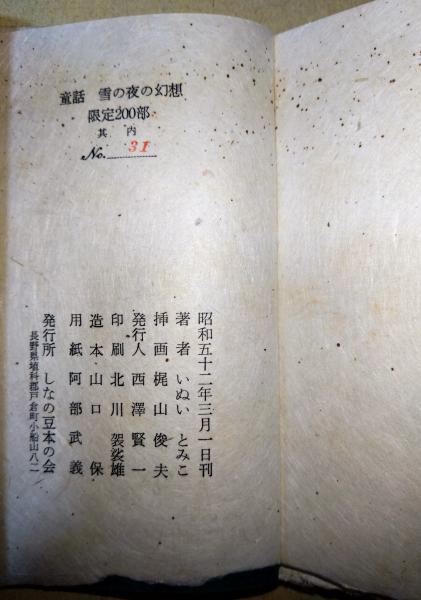 童話 雪の夜の幻想
限定200部
其内
No. 31
昭和五十二年三月一日刊
著者 いぬいとみこ
挿画 梶山俊夫
発行人 西澤賢一
印刷 北川袈裟雄
造本 山口保
用紙 阿部武義
発行所 しなの豆本の会
長野県埴科郡戸倉町小船山八二